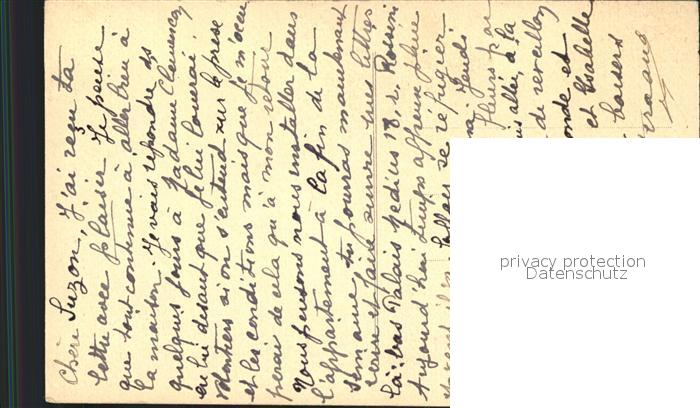 Chère Suzon, J'ai reçu ta
lettre avec plaisir. Je pense
que tout continue à aller bien à
la maison. Je vais répondre ds
quelques jours à Madame Clemency
en lui disant que je lui louerai
volontiers si on s'entend sur le prix
et les conditions mais que je m'occu
perai de cela qu'à mon retour
Nous pensons nous installer dans
l'appartement à la fin de la
semaine tu pourras maintenant
écrire et faire suivre mes lettres
là-bas Palais Médicis 18. r. Rossini
Aujourd'hui temps affreux pluie
et vent il se réfugier
Jeudi
fleurs par
allée à la
de réveillon
onde et
et Isabelle
baisers
privacy protection
Datenschutz